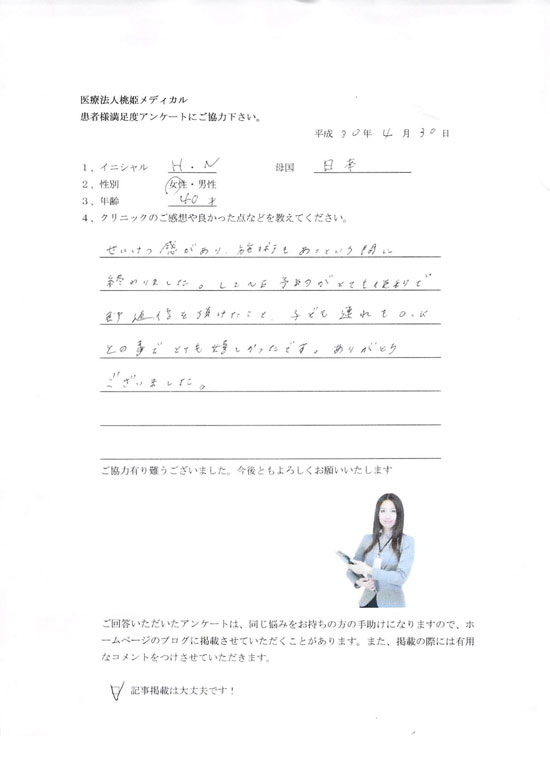 医療法人桃姫メディカル
患者様満足度アンケートにご協力下さい。
平成 30 年 4 月 30 日
1、イニシャル H・N 母国 日本
2、性別 女性・男性
3、年齢 40 才
4、クリニックのご感想や良かった点などを教えてください。
せいけつ感があり、施術もあっという間に
終わりました。LINE予約がとても便利で
即返信を頂けたこと、子ども連れもO.K
との事でとても嬉しかったです。ありがとう
ございました。
ご協力有り難うございました。今後ともよろしくお願いいたします
ご回答いただいたアンケートは、同じ悩みをお持ちの方の手助けになりますので、ホ
ームページのブログに掲載させていただくことがあります。また、掲載の際には有用
なコメントをつけさせていただきます。
記事掲載は大丈夫です！